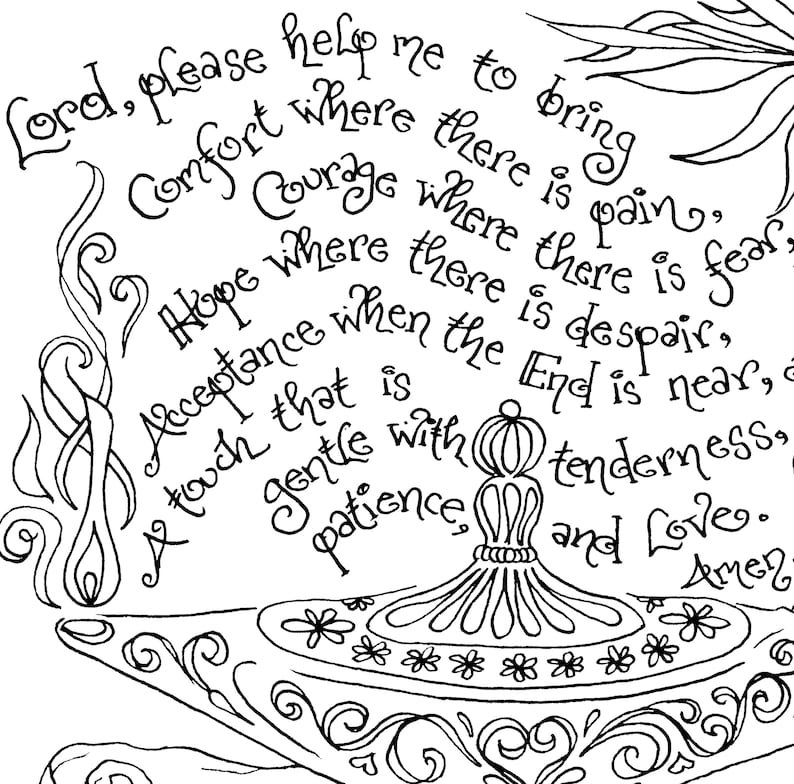 Lord, please help me to bring
Comfort where there is pain,
Courage where there is fear,
Hope where there is despair,
Acceptance when the End is near,
A touch that is
gentle with tenderness,
patience, and Love.
Amen